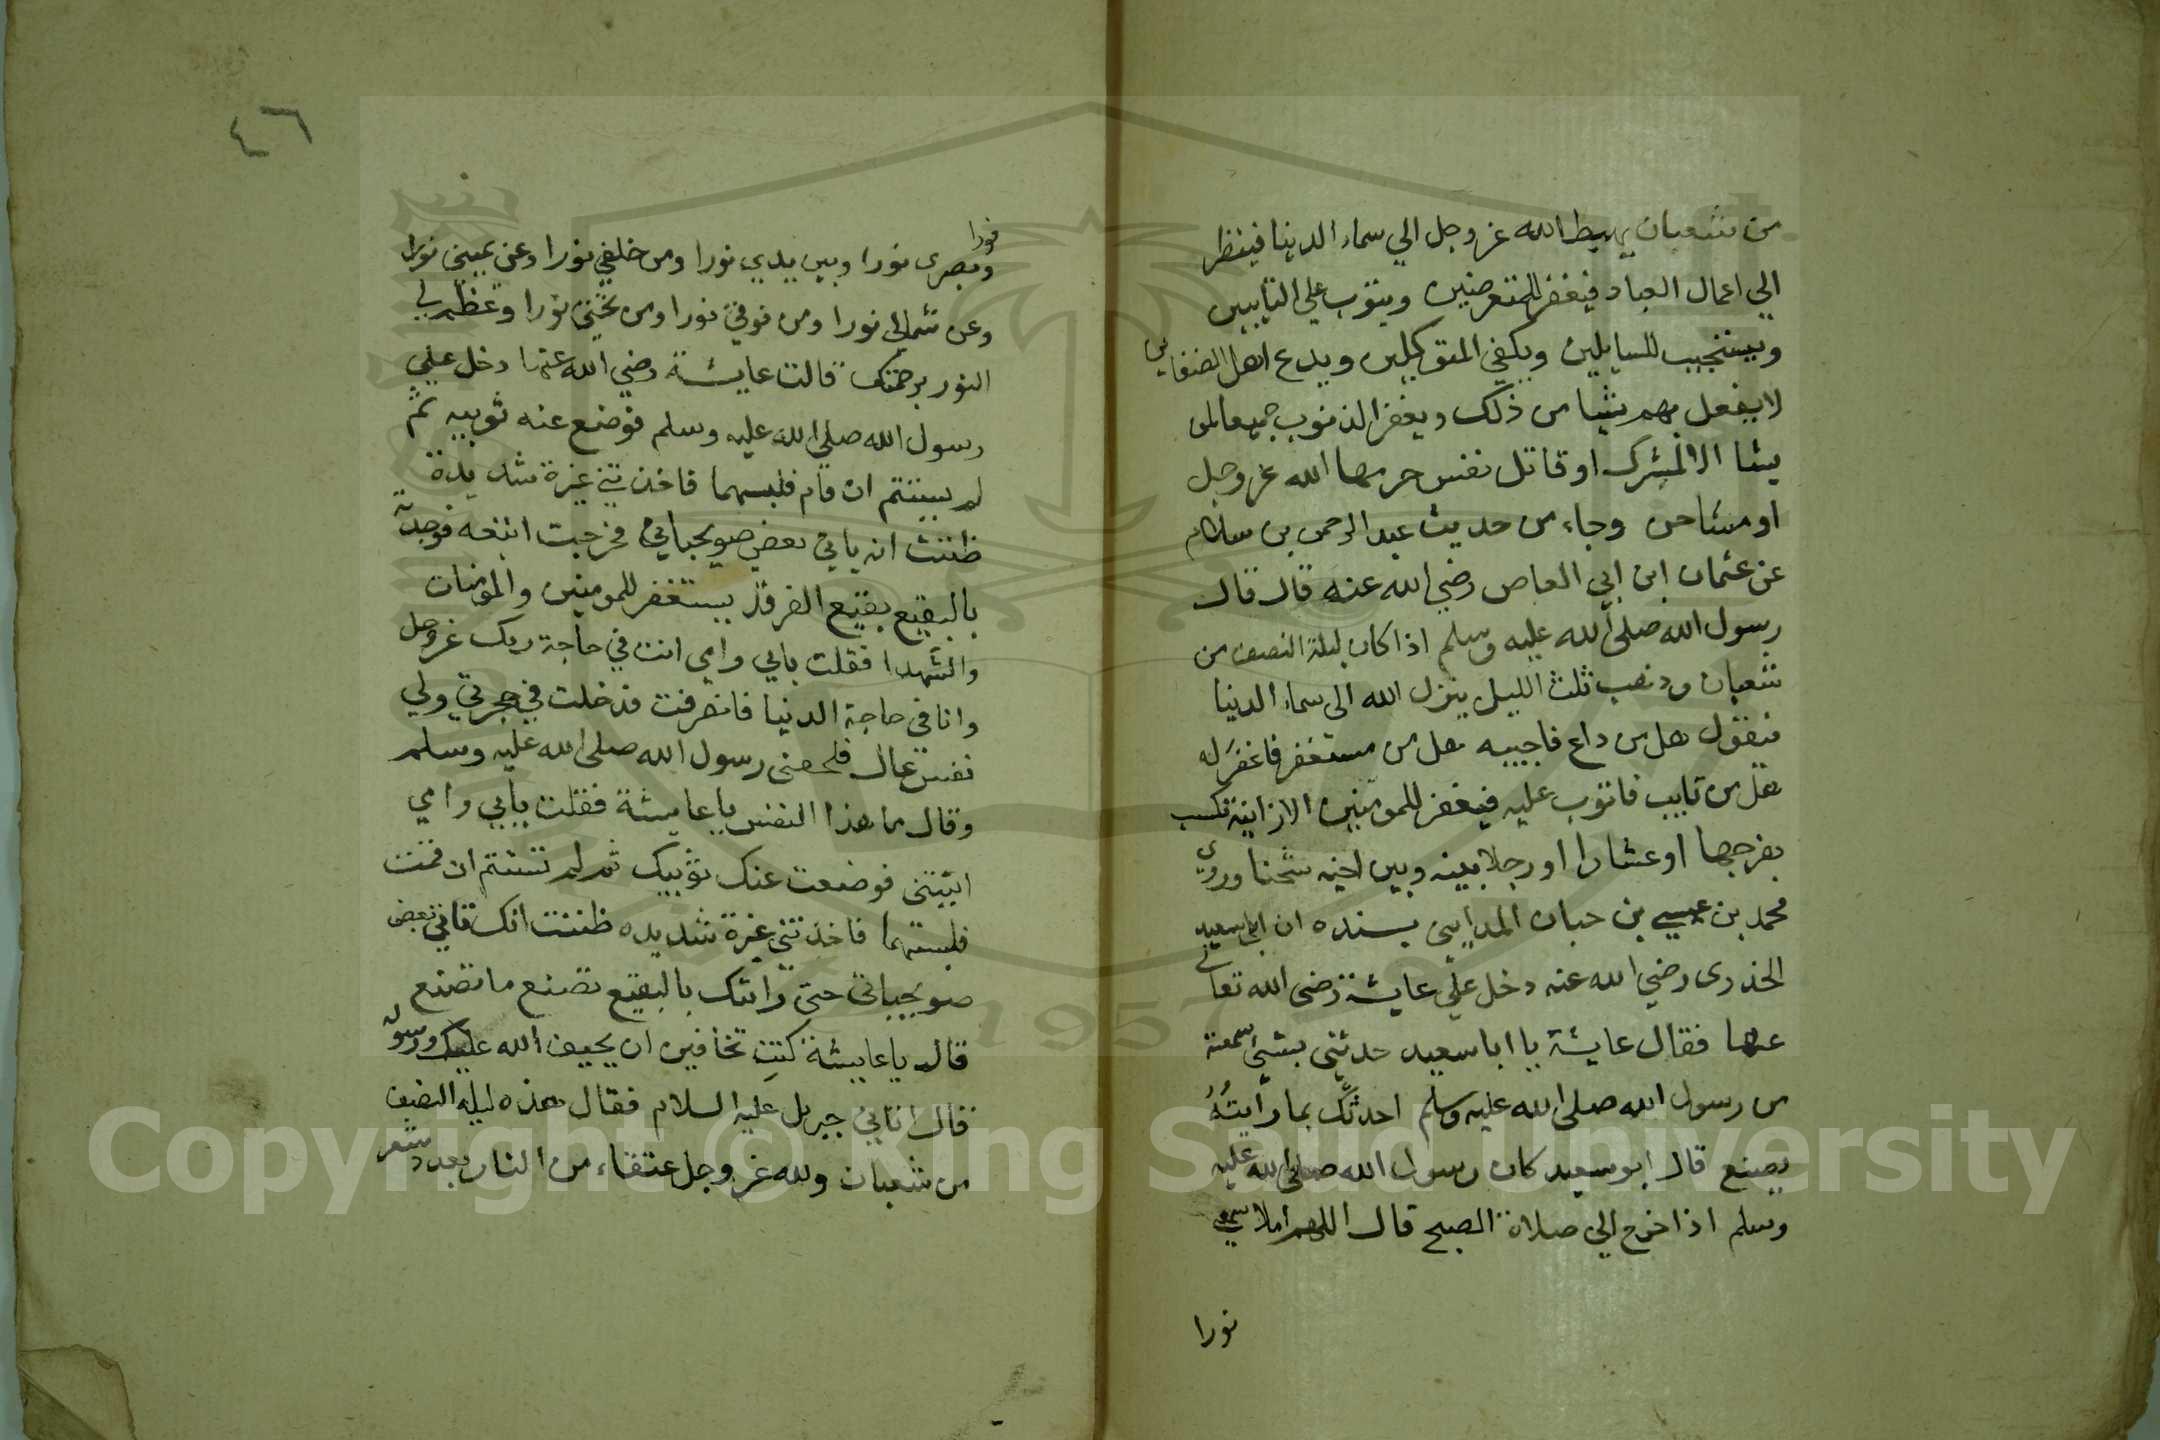 من شعبان يهبط الله عز وجل الي سماء الدنيا فينظر
الي اعمال العباد فيغفر للمتعرضين ويتوب علي التايبين
ويستجيب للسايلين ويكفي المتوكلين ويدع اهل الضغاين
لا يفعل بهم شيا من ذلك ويغفر الذنوب جميعا لمن
يشا الا لمشرك او قاتل نفس حرمها الله عز وجل
او مشاحن وجاء من حديث عبد الرحمن بن سلام
عن عثمان ابن ابي العاص رضي الله عنه قال قال
رسول الله صلى الله عليه وسلم اذا كان ليلة النصف من
شعبان وذهب ثلث الليل ينزل الله الى سماء الدنيا
فيقول هل من داع فاجيبه هل من مستغفر فاغفر له
هل من تايب فاتوب عليه فيغفر للمومنين الا زانية تكسب
بفرجها او عشارا او رجلا بينه وبين اخيه شحنا وروي
محمد بن عيسي بن حبان المدايني بسنده ان ابي سعيد
الخدرى رضي الله عنه دخل علي عايشة رضى الله تعالى
عنها فقال عايشة يا ابا سعيد حدثني بشئ سمعته
من رسول الله صلى الله عليه وسلم احدثك بما رأيته
يصنع قال ابو سعيد كان رسول الله صلى الله عليه
وسلم اذا خرج الي صلاة الصبح قال اللهم املا سمعي
نورا
٤٦
نورا
وبصرى نورا وبين يدي نورا ومن خلفي نورا وعن يميني نورا
وعن شمالي نورا ومن فوقي نورا ومن تحتي نورا وعظم لي
النور برحمتك قالت عايشة رضي الله عنها دخل علي
رسول الله صلى الله عليه وسلم فوضع عنه ثوبيه ثم
لم يستتم ان قام فلبسهما فاخذتني غيرة شديدة
ظننت انه ياتي بعض صويحباتي فخرجت اتبعه فوجدته
بالبقيع بقيع الغرقد يستغفر للمومنين والمومنات
والشهدا فقلت بابي وامي انت في حاجة ربك عز وجل
وانا في حاجة الدنيا فانصرفت فدخلت في حجرتي ولي
نفس عال فلحقنى رسول الله صلى الله عليه وسلم
وقال ما هذا النفس يا عايشة فقلت بابي وامي
اتيتنى فوضعت عنك ثوبيك ثم لم تستتم ان قمت
فلبستهما فاخذتني غيرة شديده ظننت انك تاتي بعض
صويحباتي حتى رايتك بالبقيع تصنع ما تصنع
قال يا عايشة كنت تخافين ان يحيف الله عليك ورسوله
قال اتاني جبريل عليه السلام فقال هذه ليلة النصف
من شعبان ولله عز وجل عتقاء من النار بعدد شعر
Copyright © King Saud University
1957